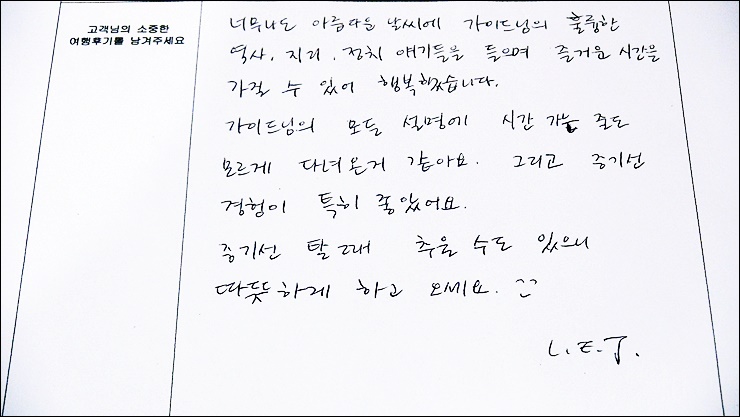 고객님의 소중한
여행후기를 남겨주세요
너무나도 아름다운 날씨에 가이드님의 훌륭한
역사, 지리, 정치 얘기들을 들으며 즐거운 시간을
가질 수 있어 행복했습니다.
가이드님의 모든 설명에 시간 가는 줄도
모르게 다녀온거 같아요. 그리고 증기선
경험이 특히 좋았어요.
증기선 탈 때 추울 수도 있으니
따뜻하게 하고 오세요. ^^
L.E.J.